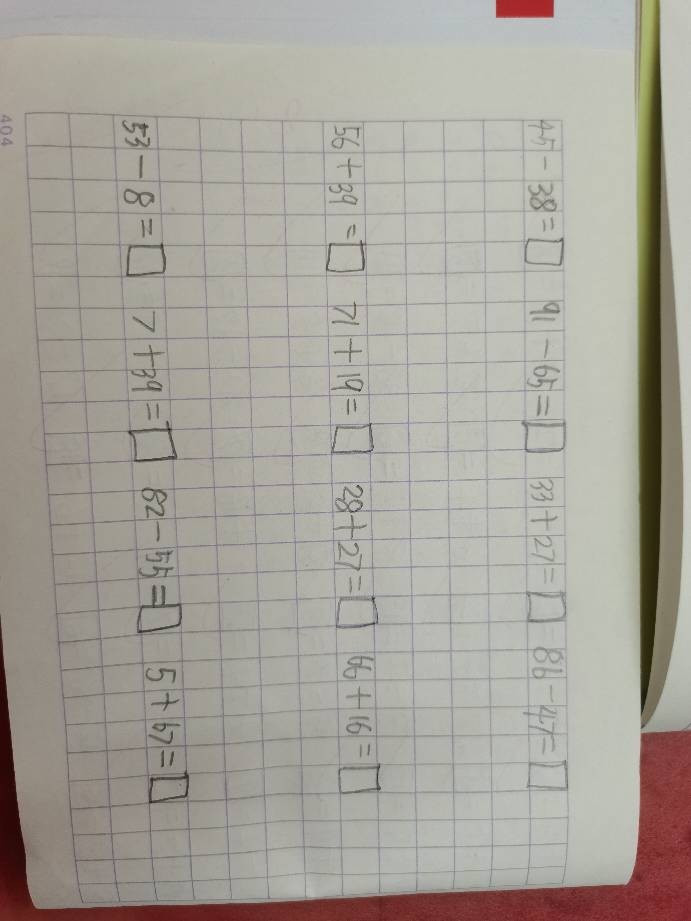 45-38=□ 91-65=□ 33+27=□ 86-47=□
56+39=□ 71+19=□ 28+27=□ +16=□
53-8=□ 7+39=□ 82-55=□ 5+67=□
404